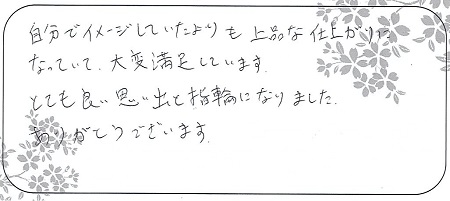 自分でイメージしていたよりも上品な仕上がりに
なっていて、大変満足しています。
とても良い思い出と指輪になりました。
ありがとうございます。